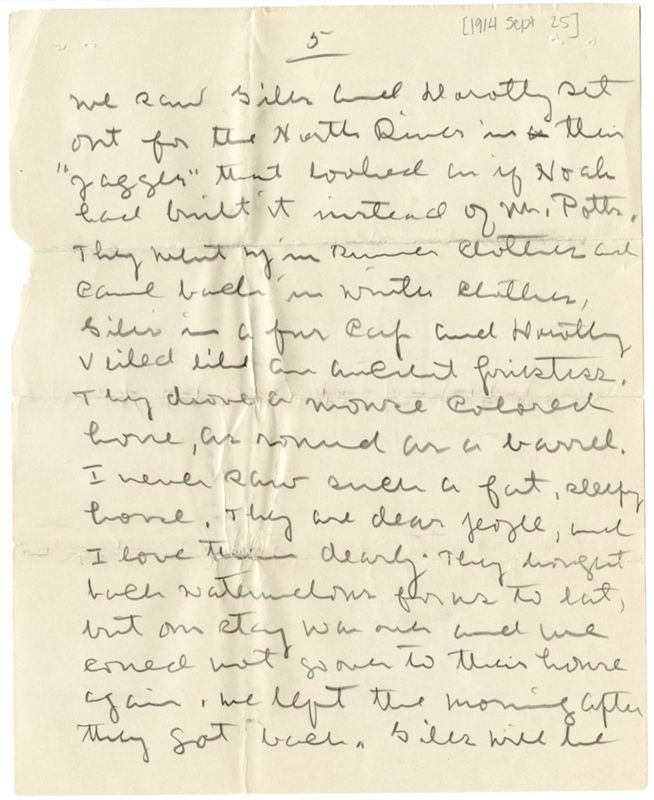 [1914 Sept 25]
5
we saw Giles and Dorothy set
out for the North River in their
"jagger" that looked as if Noah
had built it instead of Mr. Potts.
They went off in summer clothes and
came back in winter clothes,
Giles in a fur cap and Dorothy
veiled like an ancient priestess.
They drove a mouse colored
horse, as round as a barrel.
I never saw such a fat, sleepy
horse. They are dear people, and
I love them dearly. They brought
back watermelons for us to eat,
but our stay was over and we
could not go over to their house
again. We left the morning after
they got back. Giles will be